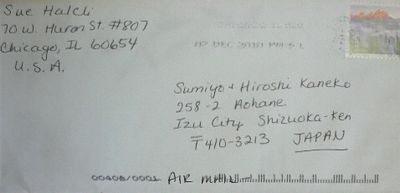 Sue Halcli
70 W. Huron St. #807
Chicago, IL 60654
U.S.A.
02 DEC 2010 PM 5 L
Sumiyo + Hiroshi Kaneko
258-2 Aohane
Izu City Shizuoka-Ken
〒410-3213 JAPAN
00408/0001 AIR MAIL